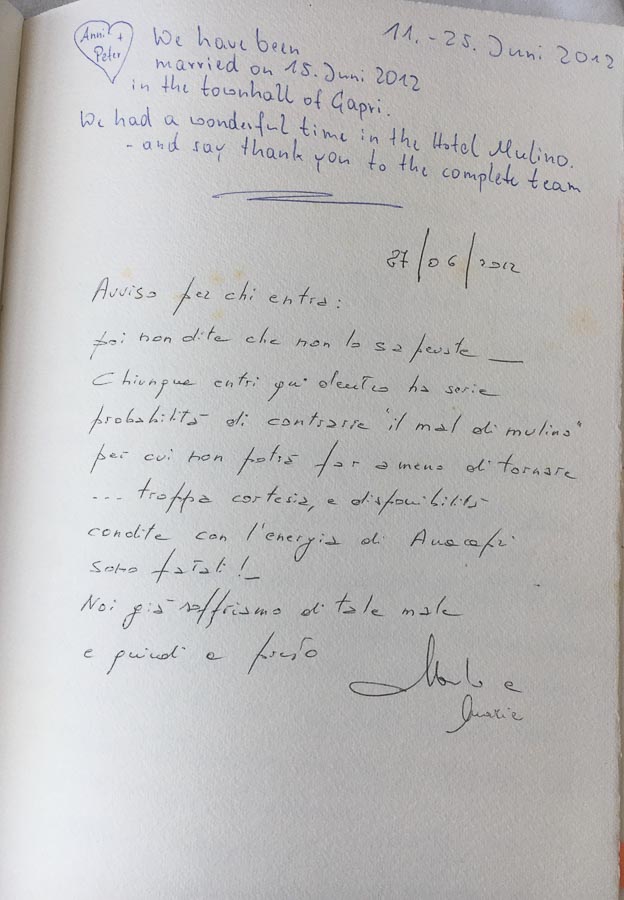 11. - 25. Juni 2012
Anni +
Peter
We have been
married on 15. Juni 2012
in the townhall of Capri.
We had a wonderful time in the Hotel Mulino.
- and say thank you to the complete team
27/06/2012
Avviso per chi entra:
poi non dite che non lo sapevate _
Chiunque entri qui dentro ha serie
probabilità di contrarre "il mal di mulino"
per cui non potrà far a meno di tornare
... troppa cortesia, e disponibilità
condite con l'energia di Anacapri
sono fatali! _
Noi già soffriamo di tale male
e quindi a presto
e